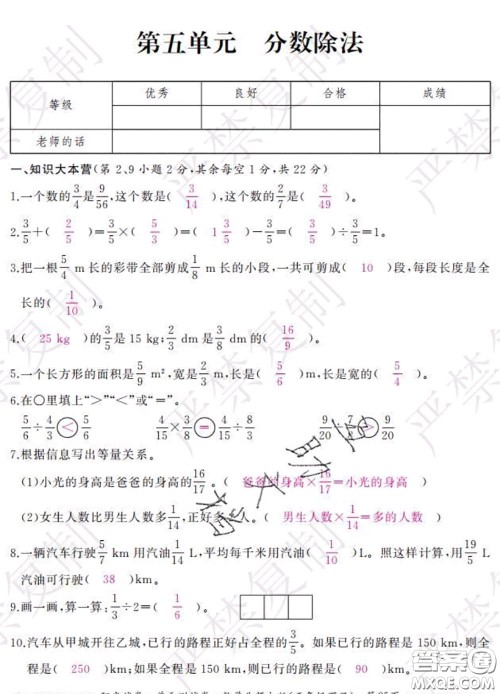 第五单元　分数除法
等级 优秀 良好 合格 成绩
老师的话
一、知识大本营(第2、9小题2分,其余每空1分,共22分)
1.一个数的3/4是9/56,这个数是( 3/14 ),这个数的2/7是( 3/49 )。
2.3/5+( 2/5 )=3/5×( 5/3 )=( 1 3/5 )-3/5=( 3/5 )÷3/5=1。
3.把一根5/4 m长的彩带全部剪成1/8 m长的小段,一共可剪成( 10 )段,每段长度是全
长的( 1/10 )。
4.( 25 kg )的3/5是15 kg;2/3 dm是3/8 dm的( 16/9 )。
5.一个长方形的面积是5/9 m²,宽是2/3 m,长是( 5/6 )m,长是宽的( 5/4 )。
6.在○里填上“>”“<”或“=”。
5/6÷4/3<5/6 4/15×3/8=4/15÷8/3 9/20÷7/8>9/20
7.根据信息写出等量关系。
(1)小光的身高是爸爸的身高的16/17。( 爸爸的身高×16/17=小光的身高 )
(2)女生人数比男生人数多1/14,正好多 人。( 男生人数×1/14=多的人数 )
8.一辆汽车行驶5/7 km用汽油1/14 L,平均每千米用汽油( 1/10 )L。照这样计算,用19/5 L
汽油可行驶( 38 )km。
9.画一画,算一算:1/3÷2=( 1/6 )
10.汽车从甲城开往乙城,已行的路程正好占全程的3/5。如果已行的路程是150 km,则全
程是( 250 )km;如果全程是150 km,则已行的路程是( 90 )km。
严禁复制
答案圈
MXQE.COM